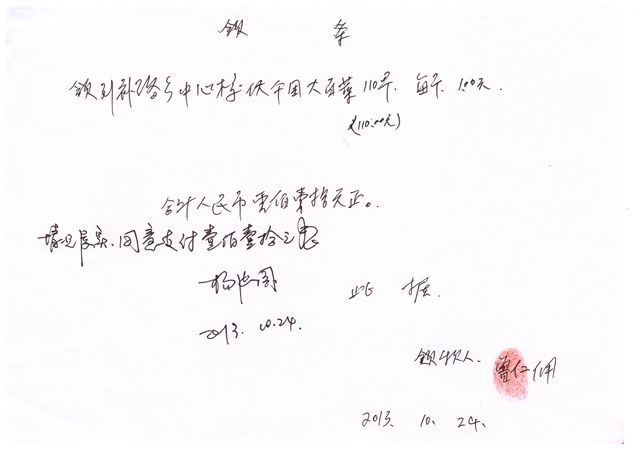 领 条
领到补路乡中心校伙牟国大白菜110斤. 每斤1.00元.
(110.00元)
合计人民币壹佰壹拾元正。
情况属实.同意支付壹佰壹拾元
2013. 10.24.
此 据.
领款人. 雷仁
2013. 10. 24.